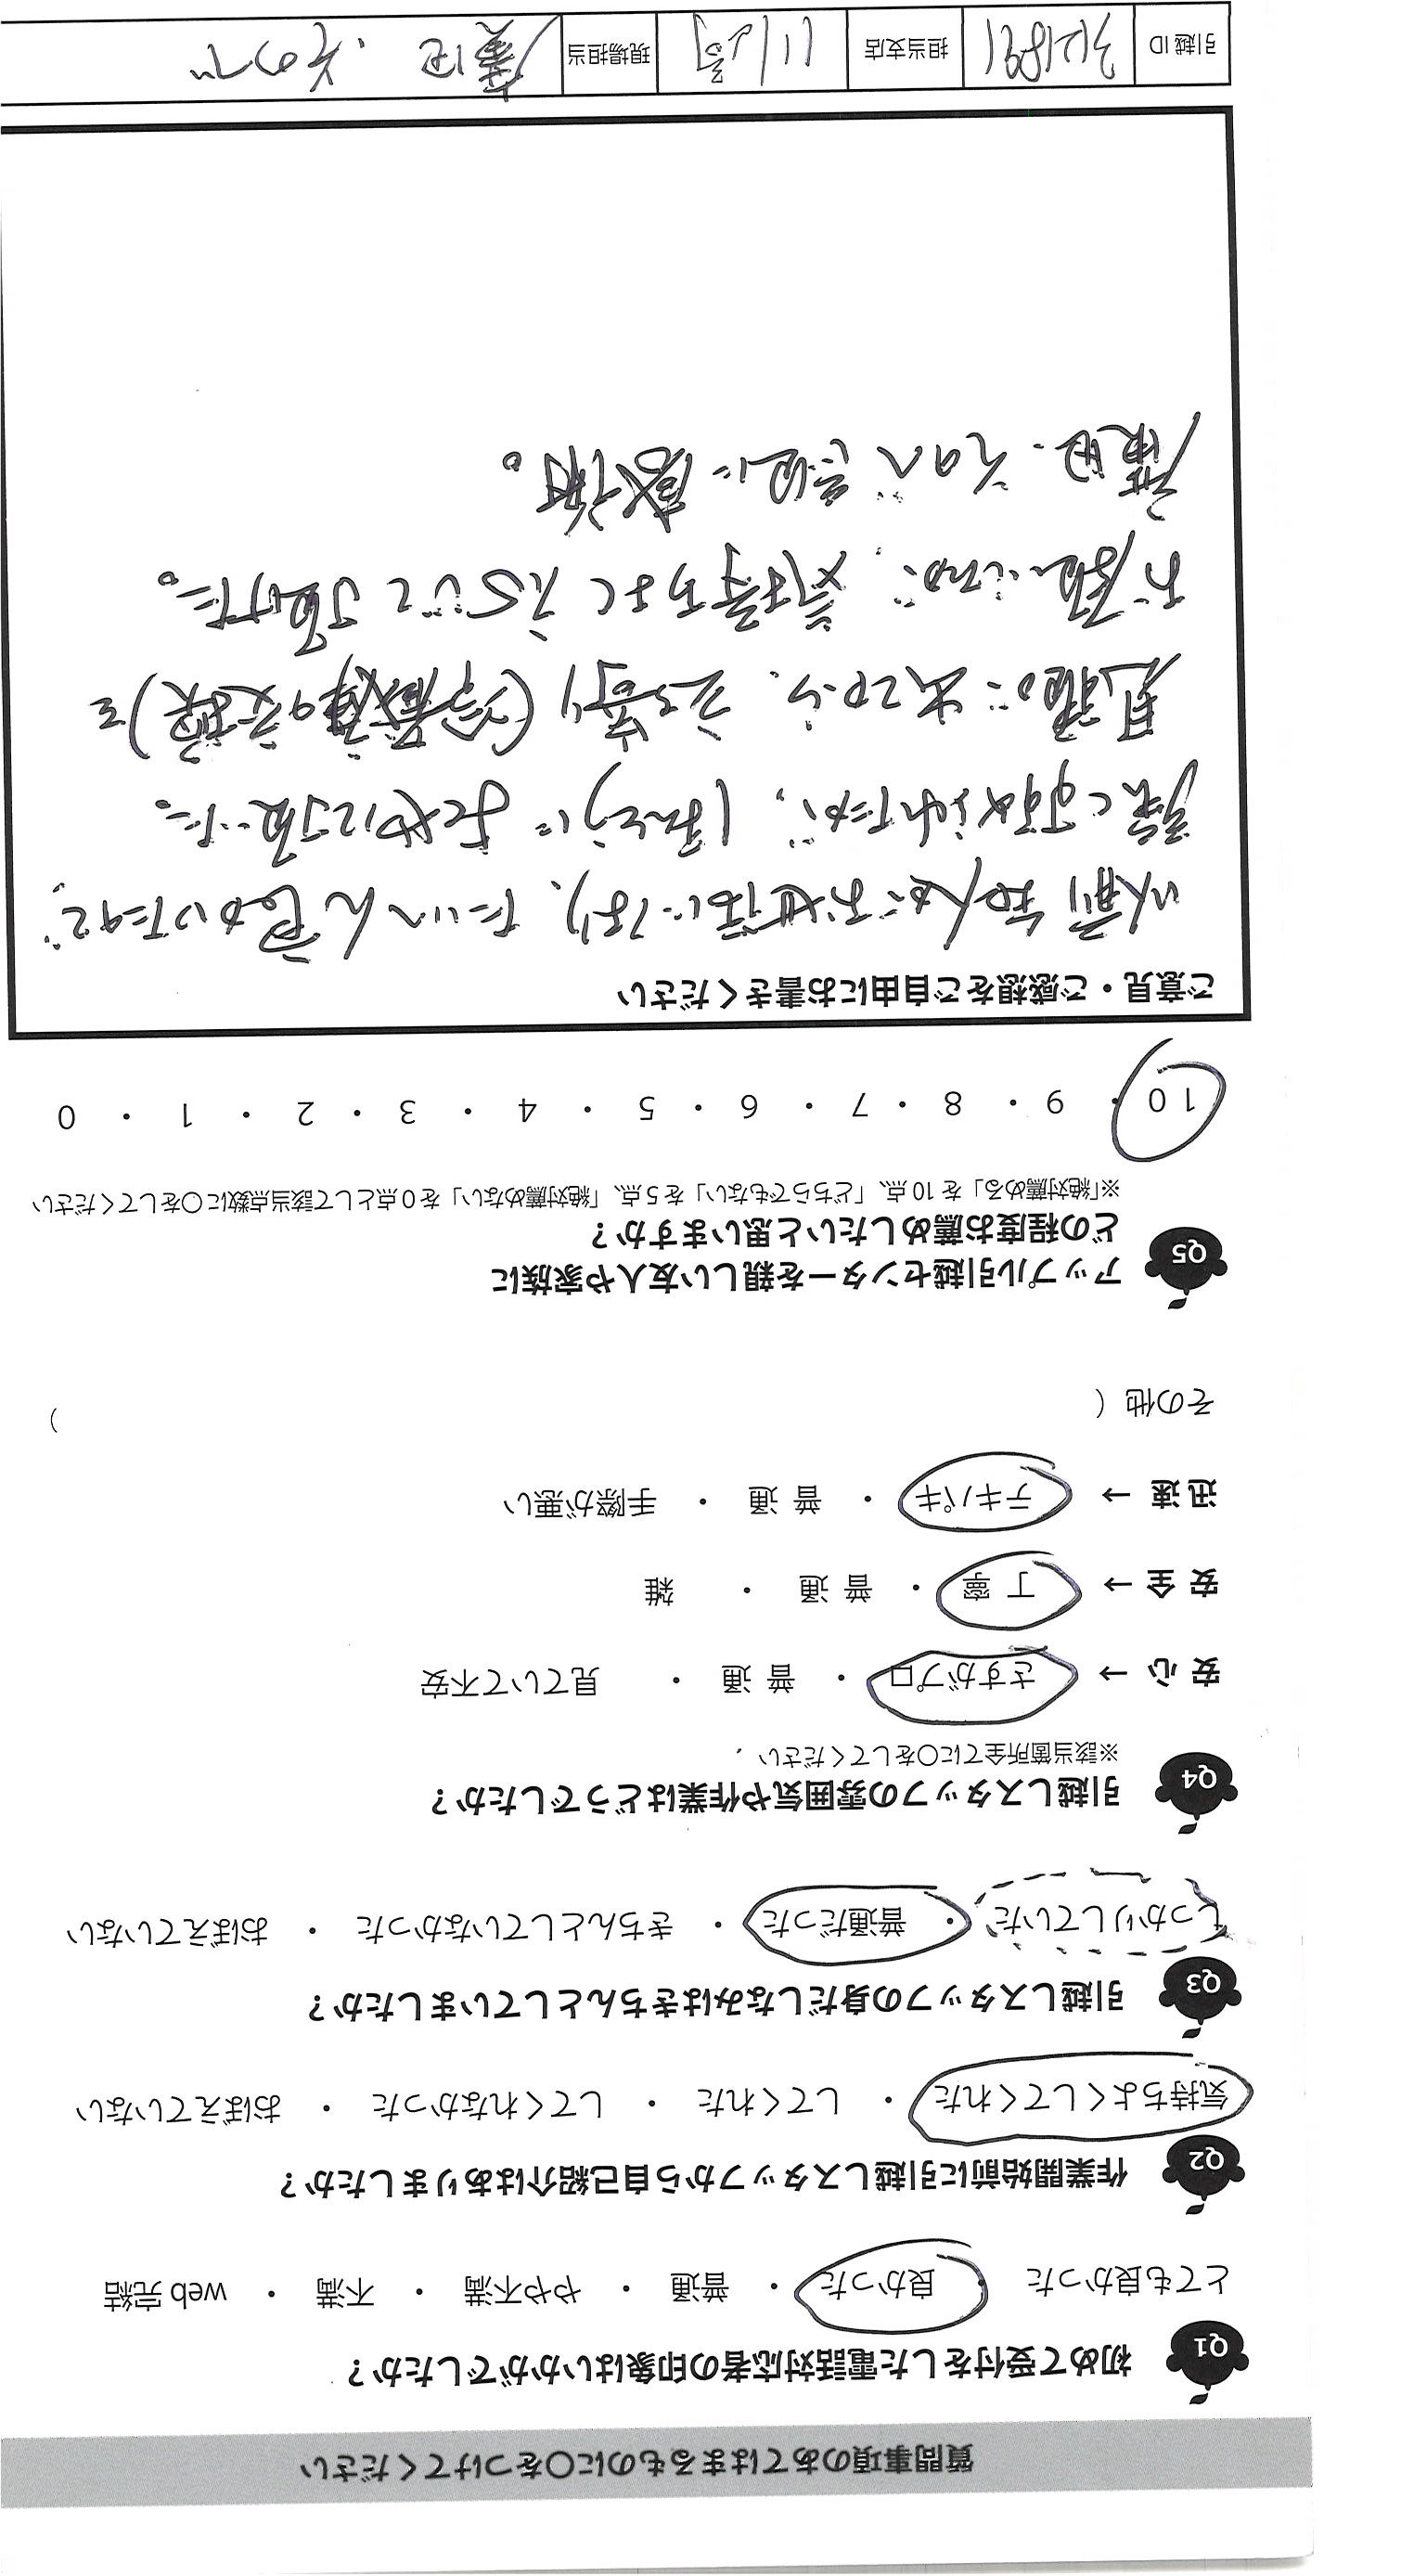 質問事項のあてはまるものに〇をつけてください
Q1 初めて受付をした電話対応者の印象はいかがでしたか？
とても良かった ・ 良かった ・ 普通 ・ やや不満 ・ 不満 ・ web 完結
Q2 作業開始前に引越しスタッフから自己紹介はありましたか？
気持ちよくしてくれた ・ してくれた ・ してくれなかった ・ おぼえていない
Q3 引越しスタッフの身だしなみはきちんとしていましたか？
しっかりしていた ・ 普通だった ・ きちんとしていなかった ・ おぼえていない
Q4 引越しスタッフの雰囲気や作業はどうでしたか？
※該当箇所全てに〇をしてください
安心 → さすがプロ ・ 普通 ・ 見ていて不安
安全 → 丁寧 ・ 普通 ・ 雑
迅速 → テキパキ ・ 普通 ・ 手際が悪い
その他（ ）
Q5 アップル引越センターを親しい友人や家族に
どの程度お薦めしたいと思いますか？
※「絶対薦める」を10点、「どちらでもない」を5点、「絶対薦めない」を0点として該当点数に〇をしてください
10 ・ 9 ・ 8 ・ 7 ・ 6 ・ 5 ・ 4 ・ 3 ・ 2 ・ 1 ・ 0
ご意見・ご感想をご自由にお書きください
以前知人がお世話になり、たいへん良かったので、
強くすすめられたが、ほんとうによくやって頂いた。
見積に出てから、立ち寄り（冷蔵庫の交換）を
お願いしたが、気持ちよく応じて頂けた。
廣田、その 両氏に感謝。
引越 ID 担当支店 現場担当